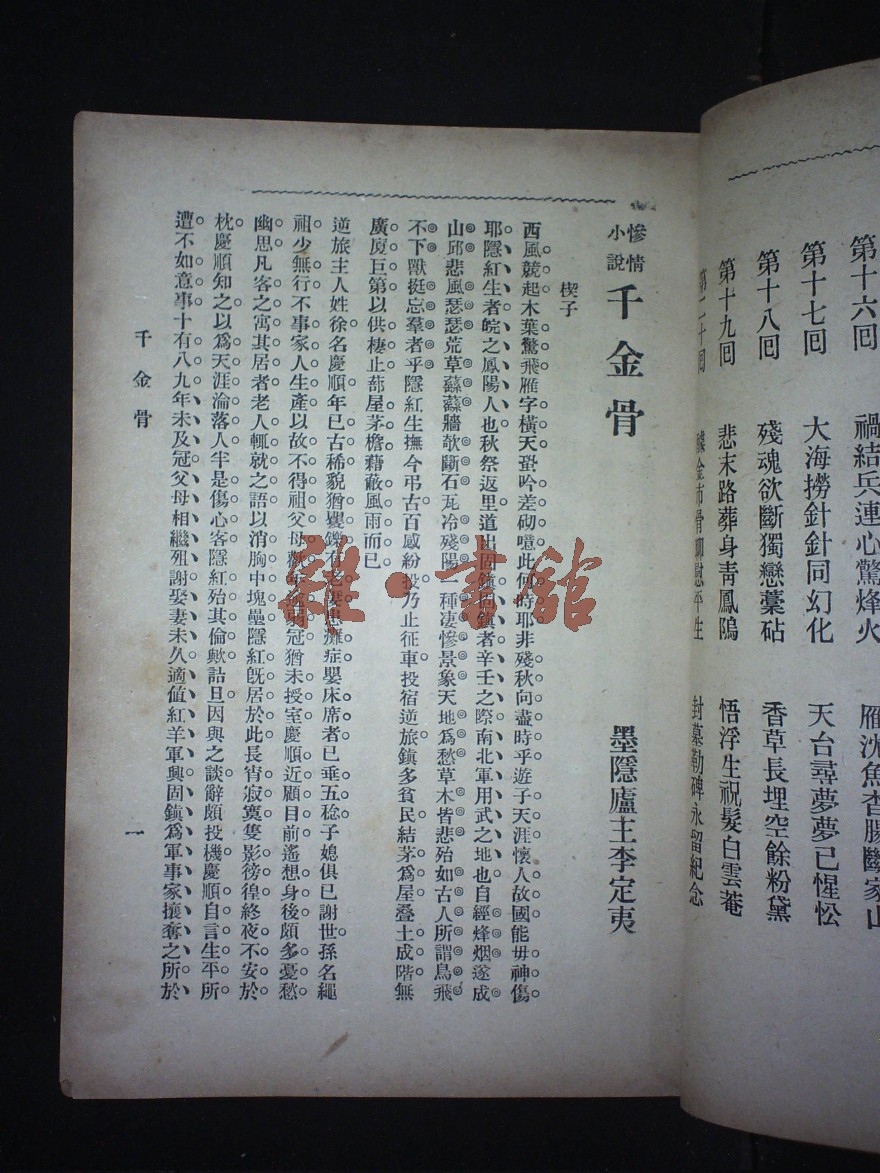 第十六回　禍結兵連心驚烽火　雁沈魚杳腸斷家山
第十七回　大海撈針針同幻化　天台尋夢夢已惺忪
第十八回　殘魂欲斷獨戀藁砧　香草長埋空餘粉黛
第十九回　悲末路葬身靑鳳塢　悟浮生祝髮白雲菴
第二十回　金市骨慰平生　封墓勒碑永留紀念
慘情小說　千金骨　墨隱廬主李定夷
楔子
西風競起木葉驚飛雁字橫天蛩吟差砌噫此何時耶非殘秋向盡時乎遊子天涯懷人故國能毋神傷
耶隱紅生者皖之鳳陽人也秋祭返里道出固鎮固鎮者辛壬之際南北軍用武之地也自經烽烟遂成
山邱悲風瑟瑟荒草蘇蘇牆欹斷石瓦冷殘陽一種凄慘景象天地爲愁草木皆悲殆如古人所謂鳥飛
不下獸挺忘羣者乎隱紅生撫今弔古百感紛投乃止征車投宿逆旅鎮多貧民結茅爲屋壘土成階無
廣廈巨第以供棲止蔀屋茅檐藉蔽風雨而已
逆旅主人姓徐名慶順年已古稀貌猶矍鑠有老妻患癱症嬰床席者已垂五稔子媳俱已謝世孫名繩
祖少無行不事家人生產以故不得祖父母歡年逾弱冠猶未授室慶順近顧目前遙想身後頗多憂愁
幽思凡客之寓其居者老人輒就之語以消胸中塊壘隱紅旣居於此長宵寂寞隻影徬徨終夜不安於
枕慶順知之以爲天涯淪落人半是傷心客隱紅殆其倫歟詰旦因與之談辭頗投機慶順自言生平所
遭不如意事十有八九年未及冠父母相繼殂謝娶妻未久適値紅羊軍興固鎮爲軍事家攘奪之所於
千金骨
一
雜·書館